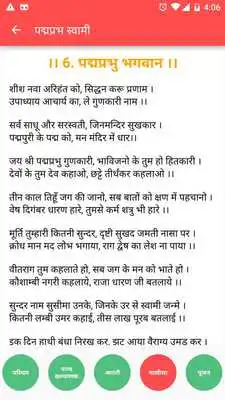 4:06
पद्मप्रभ स्वामी
।। 6. पद्मप्रभु भगवान ।।
शीश नवा अरिहंत को, सिद्धन करू प्रणाम ।
उपाध्याय आचार्य का, ले गुणकारी नाम ।।
सर्व साधू और सरस्वती, जिनमन्दिर सुखकार ।
पद्मपुरी के पद्म को, मन मंदिर में धार।।
जय श्री पद्मप्रभु गुणकारी, भाविजनो के तुम हो हितकारी ।
देवों के तुम देव कहाओ, छट्टे तीर्थंकर कहलाओ ।।
तीन काल तिहूँ जग की जानो, सब बातों को क्षण में पहचानो ।
वेष दिगंबर धारण हारे, तुमसे कर्म शत्रु भी हारे ।।
मूर्ति तुम्हारी कितनी सुन्दर, दृष्टी सुखद जमती नासा पर ।
क्रोध मान मद लोभ भगाया, राग द्वेष का लेश ना पाया ।।
वीतराग तुम कहलाते हो, सब जग के मन को भाते हो ।
कौशाम्बी नगरी कहलाये, राजा धारण जी बतलाये ।।
सुन्दर नाम सुसीमा उनके, जिनके उर से स्वामी जन्मे ।
कितनी लम्बी उमर कहाई, तीस लाख पूरब बतलाई ।।
इक दिन हाथी बंधा निरख कर, झट आया वैराग्य उमड़ कर ।
परिचय
पंच कल्याणक
आरती
चालीसा
पूजन